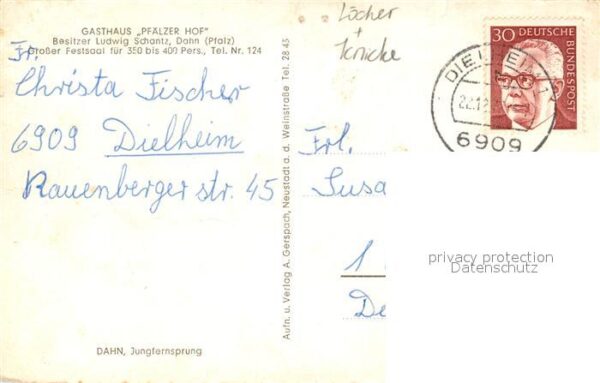 GASTHAUS „PFÄLZER HOF"
Besitzer Ludwig Schantz, Dahn (Pfalz)
Großer Festsaal für 350 bis 400 Pers., Tel. Nr. 124
Fr.
Christa Fischer
6909 Dielheim
Rauenberger str. 45
DAHN, Jungfernsprung
Aufn. u. Verlag A. Gerspach, Neustadt a. d. Weinstraße Tel. 28 45
Löcher
+
Knicke
30 DEUTSCHE
BUNDESPOST
DIELHEIM
6909
Frl.
Susa
1
De
privacy protection
Datenschutz